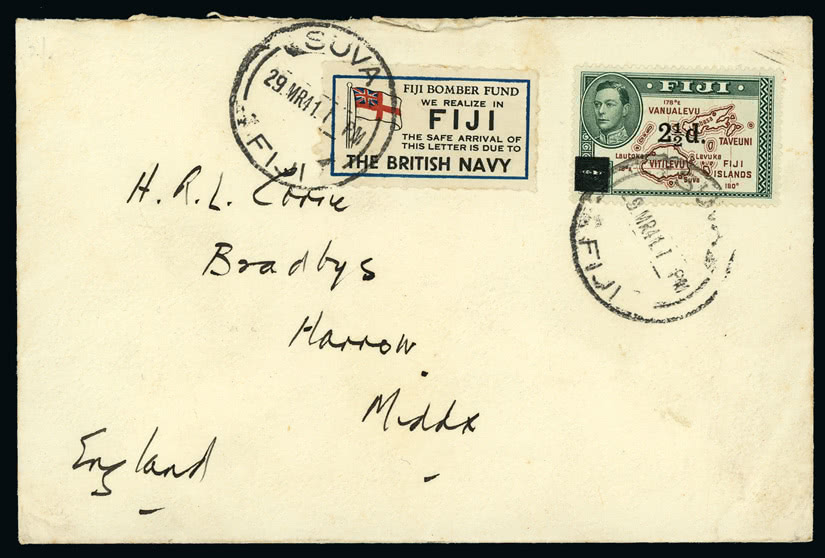 SUVA
29.MR41.1 PM
FIJI
FIJI BOMBER FUND
WE REALIZE IN
FIJI
THE SAFE ARRIVAL OF
THIS LETTER IS DUE TO
THE BRITISH NAVY
· FIJI ·
178°E
VANUALEVU
2½d.
TAVEUNI
Lautoka
Levuka
VITILEVU
FIJI
ISLANDS
Suva
180°
SUVA
29 MR41.1 PM
FIJI
H. R. L.
Bradbys
Harrow
Middx
England